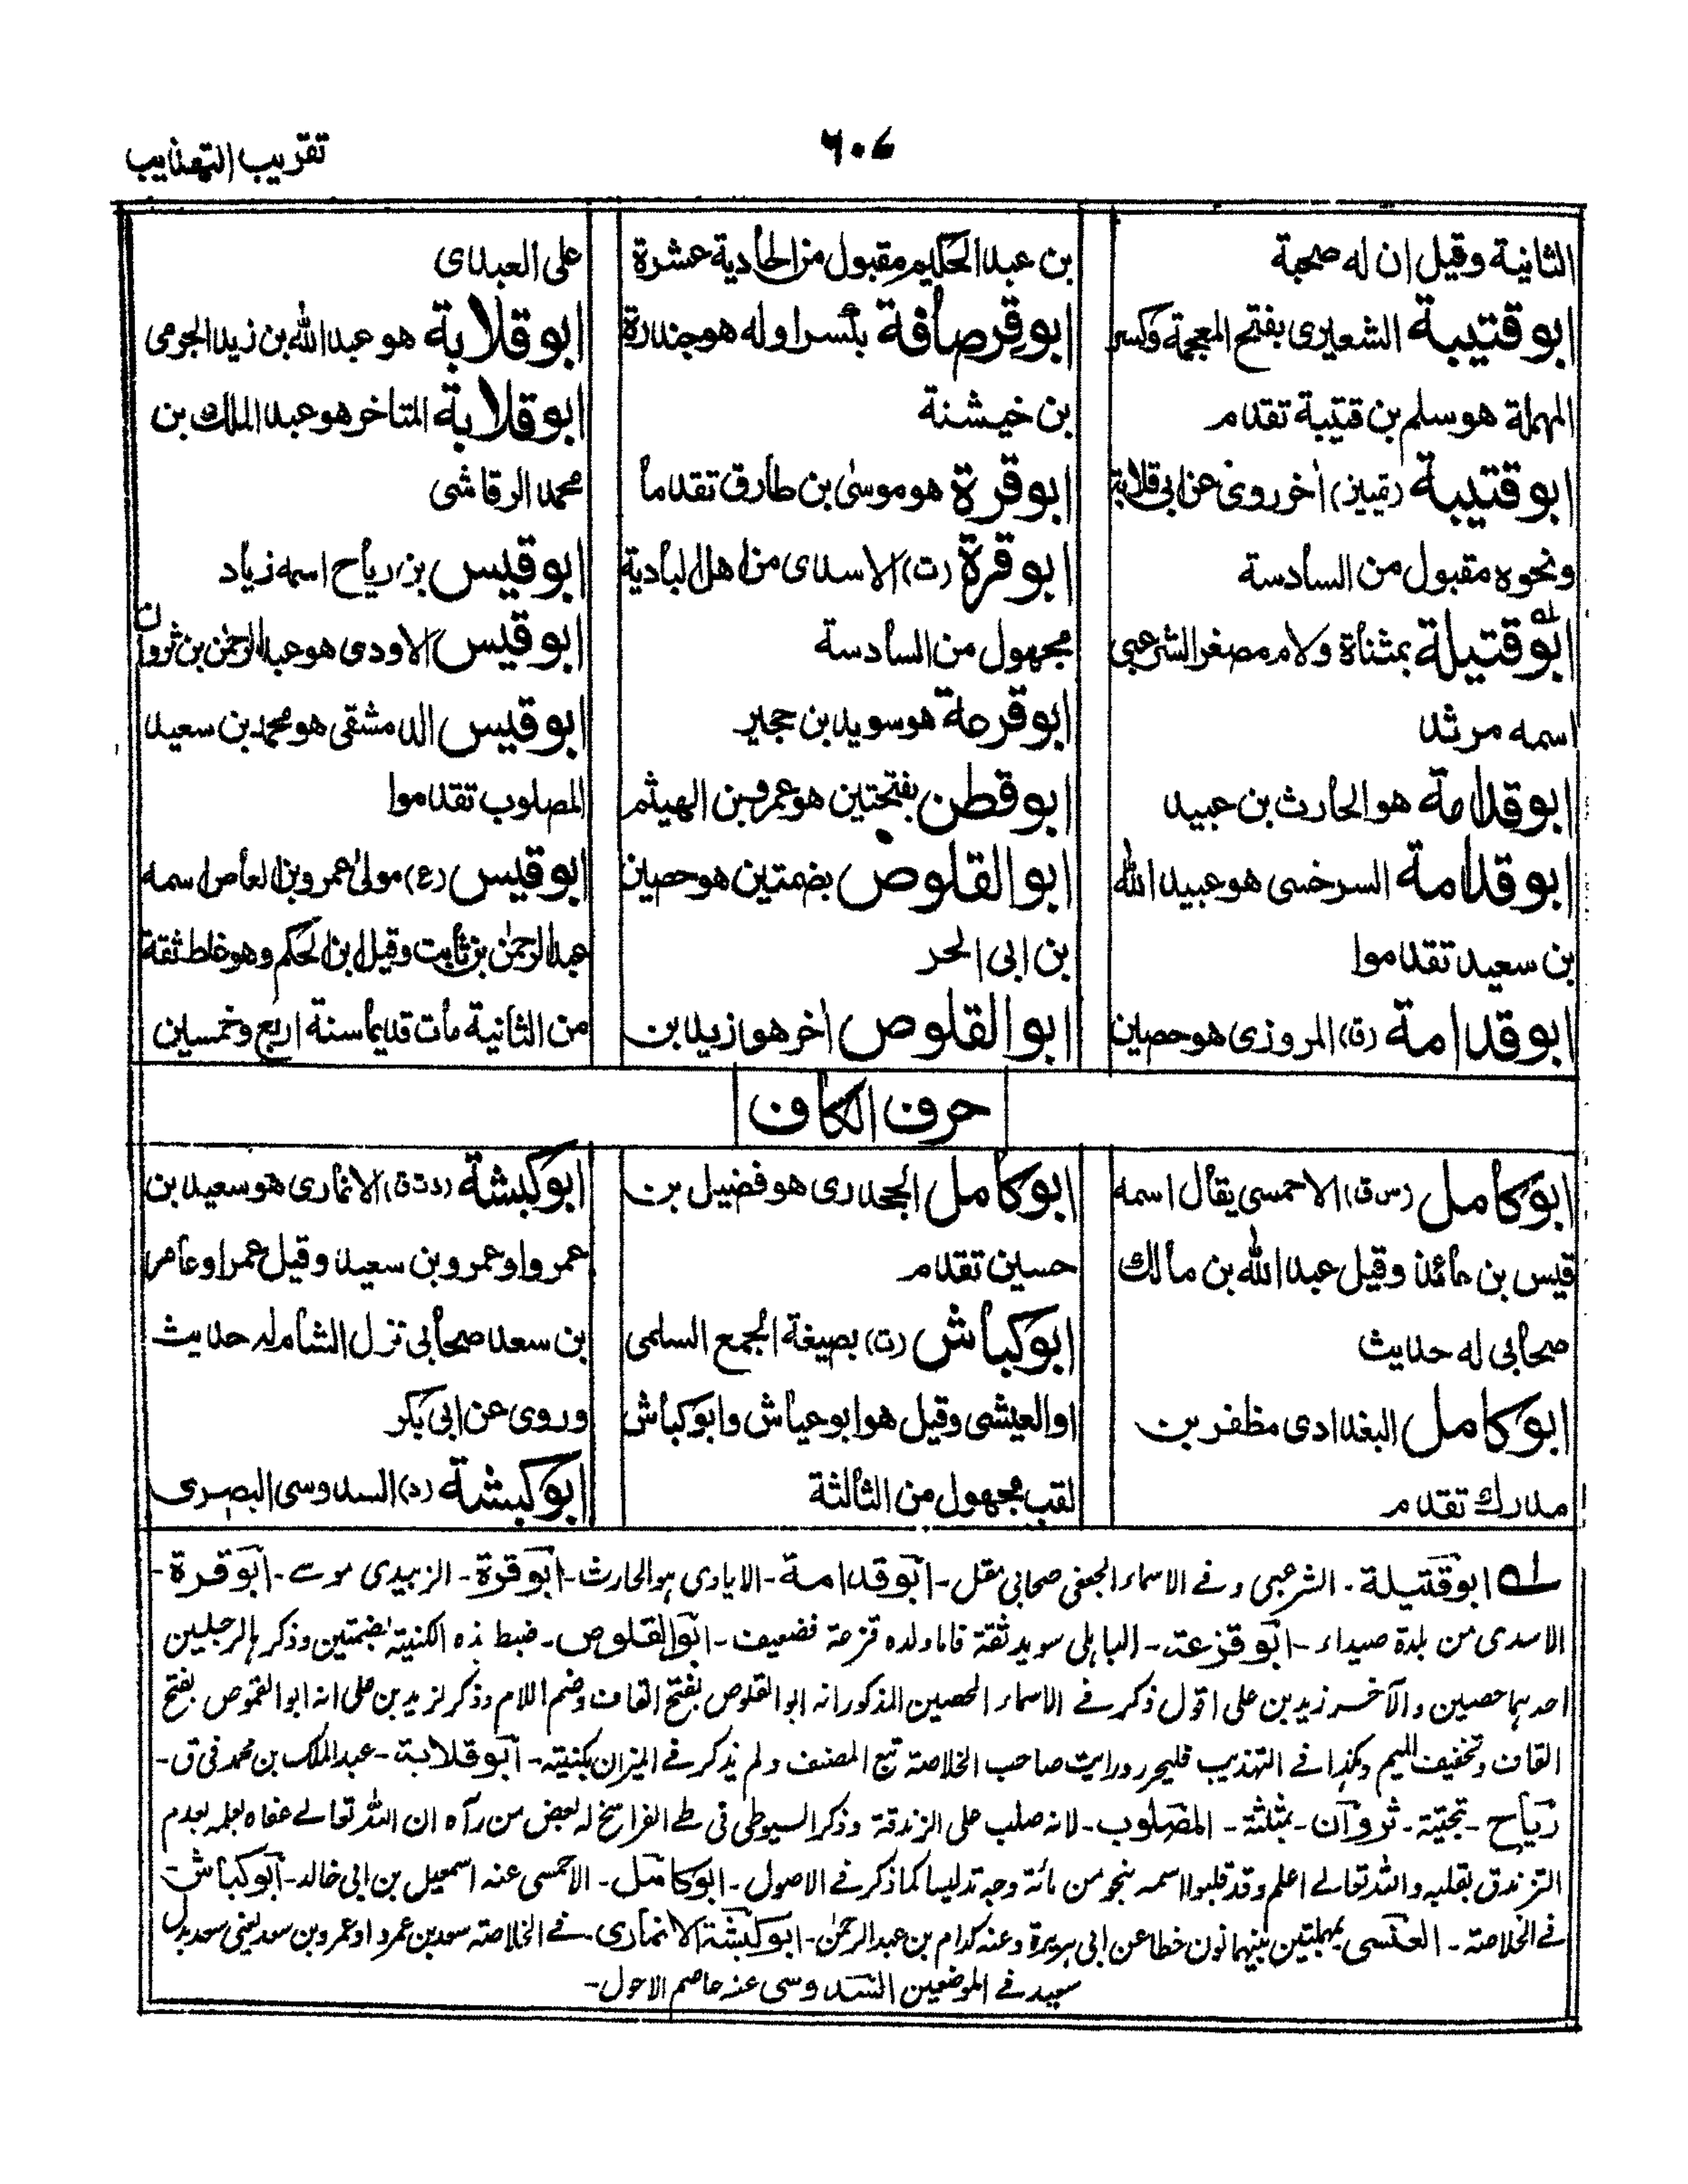 تقريب التهذيب
٦٠٤
الثانية وقيل ان له صحبة
ابو قتيبة الشعيرى بفتح المعجمة وكسر
المهملة هو سلم بن قتيبة تقدم
ابو قتيبة (تمييز) اخر روى عن ابى قلابة
ونحوه مقبول من السادسة
ابو قتيلة بمثناة ولام مصغر الشرعبى
اسمه مرثد
ابو قدامة هو الحارث بن عبيد
ابو قدامة السرخسى هو عبيد الله
بن سعيد تقدموا
ابو قدامة (ق) المروزى هو حصين
بن عبد الحكيم مقبول من الحادية عشرة
ابو قرصافة بكسر اوله هو جندرة
بن خيشنة
ابو قرة هو موسىٰ بن طارق تقدما
ابو قرة (ت) الاسدى من اهل البادية
مجهول من السادسة
ابو قزعة هو سويد بن حجير
ابو قطن بفتحتين هو عمرو بن الهيثم
ابو القلوص بضمتين هو حصين
بن ابى الحر
ابو القلوص اخر هو زيد بن
على العبدى
ابو قلابة هو عبد الله بن زيد الجرمى
ابو قلابة المتاخر هو عبد الملك بن
محمد الرقاشى
ابو قيس بن رياح اسمه زياد
ابو قيس الاودى هو عبد الرحمٰن بن ثروان
ابو قيس الدمشقى هو محمد بن سعيد
المصلوب تقدموا
ابو قيس (ع) مولى عمرو بن العاص اسمه
عبد الرحمٰن بن ثابت وقيل ابن الحكم وهو غلط ثقة
من الثانية مات قديما سنة اربع وخمسين
حرف الكاف
ابو كامل (س ق) الاحمسى يقال اسمه
قيس بن عائذ وقيل عبد الله بن مالك
صحابى له حديث
ابو كامل البغدادى مظفر بن
مدرك تقدم
ابو كامل الجحدرى هو فضيل بن
حسين تقدم
ابو كباش (ت) بصيغة الجمع السلمى
او العيشى وقيل هو ابو عياش وابو كباش
لقب مجهول من الثالثة
ابو كبشة (د ت ق) الانمارى هو سعيد بن
عمرو او عمرو بن سعيد وقيل عمر او عامر
بن سعد صحابى نزل الشام له حديث
وروى عن ابى بكر
ابو كبشة (د) السدوسى البصرى
له ابو قتيلة - الشرعبى وفے الاسماء الجعفى صحابى مقل - ابو قدامة - الايادى ہو الحارث - ابو قرة - الزبيدى موسے - ابو قرة -
الاسدى من بلدة صيداء - ابو قزعة - الباہلى سويد ثقة فاما ولده قزعة فضعيف - ابو القلوص - ضبط ہذه الكنيته بضمتين وذكر ہا لرجلين
احدہما حصين والآخر زيد بن على اقول ذكر فے الاسماء لحصين المذكور انه ابو القلوص بفتح القاف وضم اللام وذكر لزيد بن على انه ابو القموص بفتح
القاف وتخفيف الميم وكذا فے التہذيب فليحرر ورايت صاحب الخلاصة تبع المصنف ولم يذكر فے الميزان بكنيته - ابو قلابة - عبد الملك بن محمد فى ق -
رياح - تحتية - ثروان - بمثلثة - المصلوب - لانه صلب على الزندقة وذكر السيوطى فى طے الفراسخ له بعض من رآه ان اللہ تعالے عفاه لعلمه بعدم
التزندق بقلبه واللہ تعالے اعلم وقد قلبوا اسمه بنحو من مائة وجه تدليسا كما ذكر فے الاصول - ابو كامل - الاحمسى عنه اسمعيل بن ابى خالد - ابو كباش
فے الخلاصة - العنسى بمہملتين بينہما نون خطا عن ابى ہريرة وعنه كدام بن عبد الرحمٰن - ابو كبشة الانمارى - فے الخلاصة سعد بن عمرو او عمرو بن سعد يعنى سعد بدل
سعيد فے الموضعين السدوسى عنه عاصم الاحول -